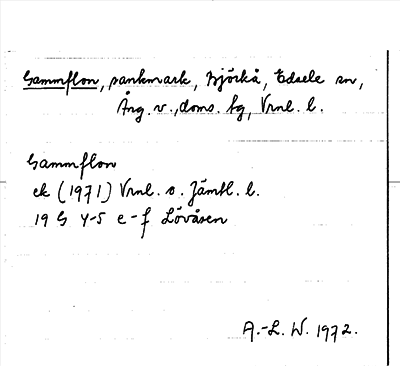 Gammflon, sankmark, Björkå, Edsele sn,
Ång. v., doms. hg, Vrnl. l.
Gammflon
ek (1971) Vrnl. o. Jämtl. l.
19 G 4-5 e-f Lövåsen
A.-L. W. 1972.